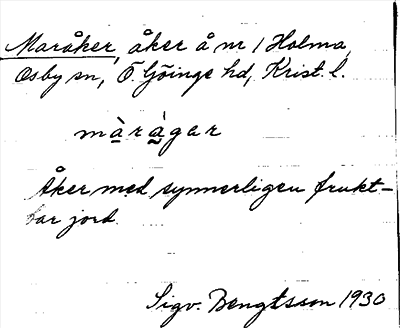 Maråker, åker å nr 1 Holma,
Osby sn, Ö. Göinge hd, Krist. l.
màràgar
Åker med synnerligen frukt-
bar jord.
Sigv. Bengtsson 1930